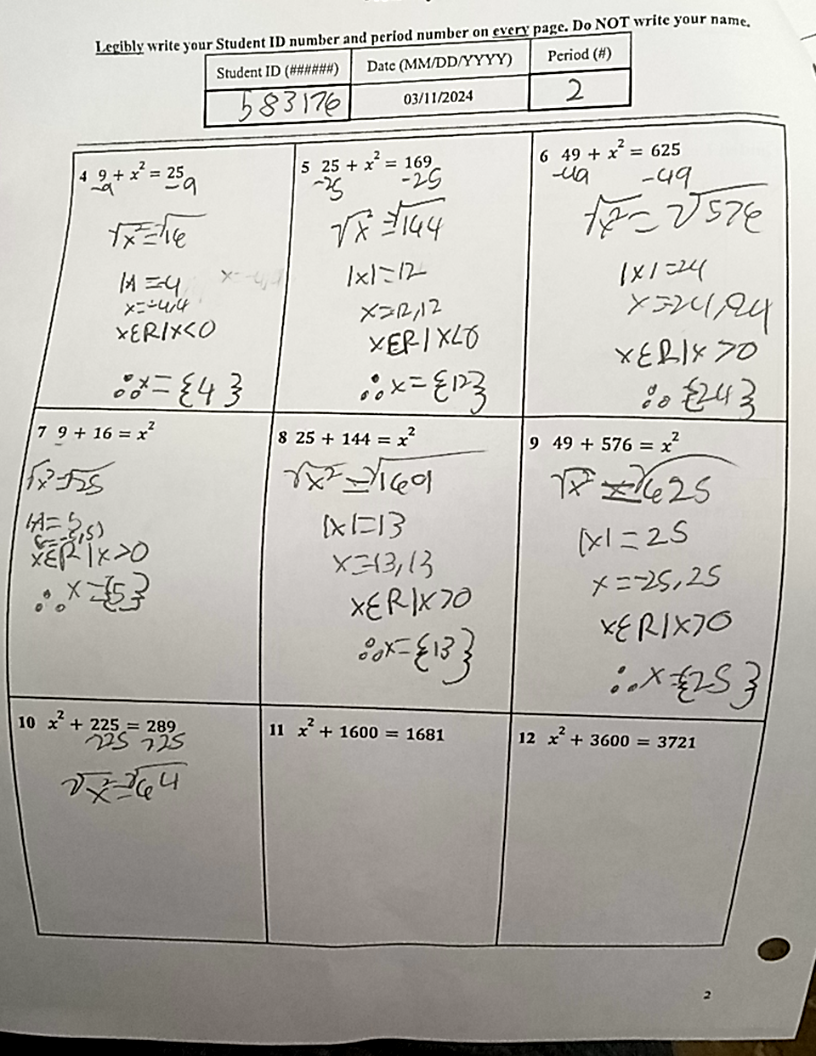 Legibly write your Student ID number and period number on every page. Do NOT write your name.
Student ID (######) Date (MM/DD/YYYY) Period (#)
583176 03/11/2024 2
4 9 + x² = 25
-9 -9
√x² = √16
|x| = 4
x = -4,4
xεR|x<0
∴x = {4}
5 25 + x² = 169
-25 -25
√x² = √144
|x| = 12
x = 12,12
xεR|x<0
∴x = {12}
6 49 + x² = 625
-49 -49
√x² = √576
|x| = 24
x = 24,24
xεR|x>0
∴ {24}
7 9 + 16 = x²
√x² = √25
|x| = 5
xεR|x>0
∴x = {5}
8 25 + 144 = x²
√x² = √1601
|x| = 13
x = 13,13
xεR|x>0
∴x = {13}
9 49 + 576 = x²
√x² = √625
|x| = 25
x = -25,25
xεR|x>0
∴x = {25}
10 x² + 225 = 289
225 225
√x² = √64
11 x² + 1600 = 1681
12 x² + 3600 = 3721
2